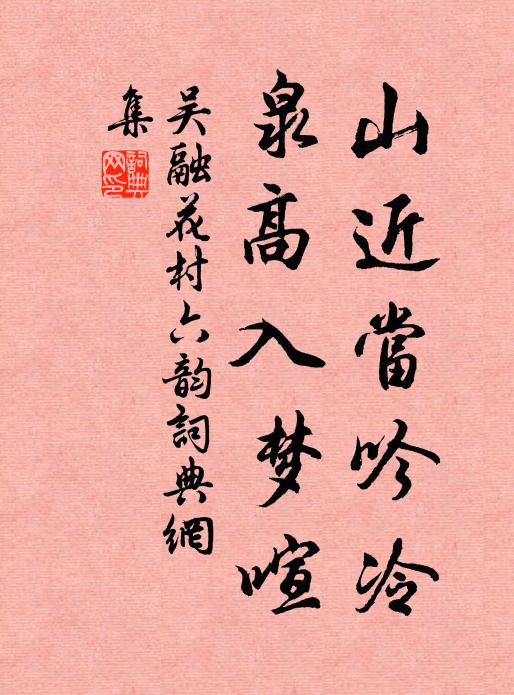 山近當吟冷
泉高入梦喧
吴融花村六韵詞典網
集
詞典网印